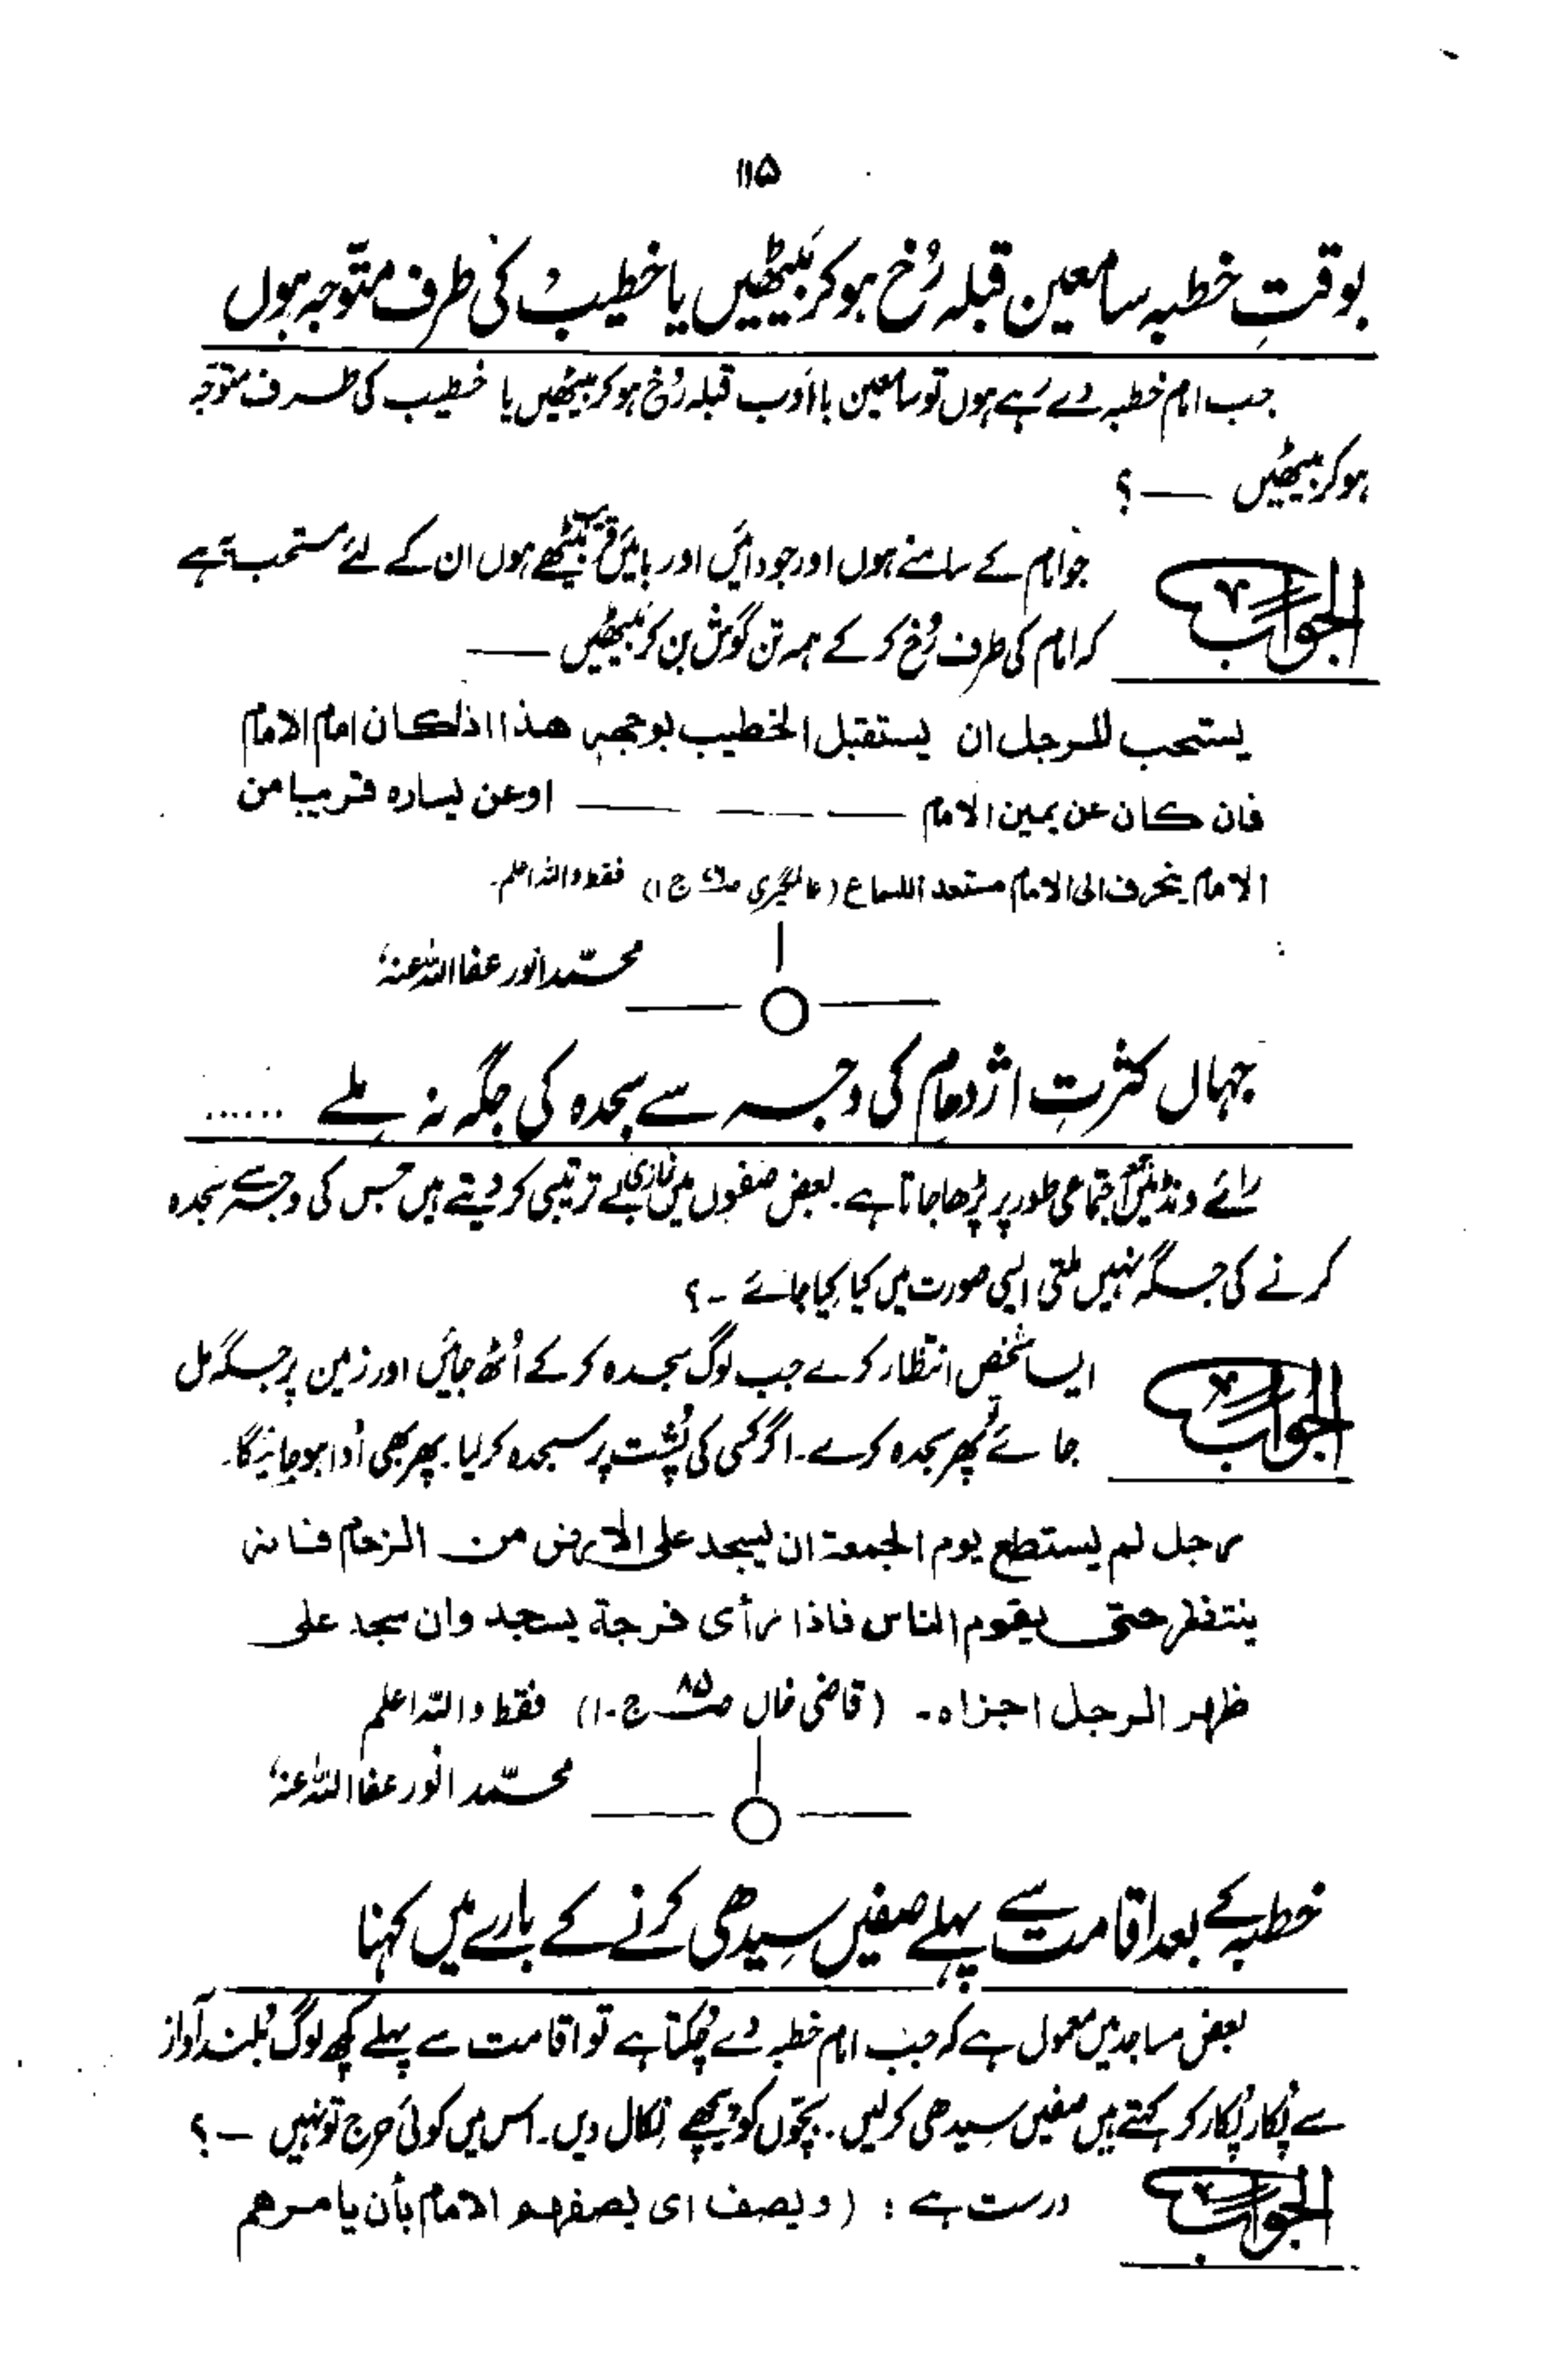 ۱۱۵
بوقتِ خطبہ سامعین قبلہ رُخ ہو کر بیٹھیں یا خطیب کی طرف متوّجہ ہوں
جب امام خطبہ دے رہے ہوں تو سامعین باادب قبلہ رُخ ہو کر بیٹھیں یا خطیب کی طرف متوجّہ
ہو کر بیٹھیں ــــ ؟
الجواب
جو امام کے سامنے ہوں اور جو دائیں اور بائیں قریب بیٹھے ہوں ان کے لئے مستحب ہے
کہ امام کی طرف رُخ کر کے ہمہ تن گوش بن کر بیٹھیں ــــ
یستحب للرجل ان یستقبل الخطیب بوجھہ ھذا اذا کان امام الامام
فان کان عن یمین الامام ــــ ــــ ــــ اوعن یسارہ قریبا من
الامام ینحرف الی الامام مستعدا للسماع (عالمگیری ج۱) فقط واللہ اعلم۔
محمّد انور عفا اللہ عنہٗ
جہاں کثرتِ اژدھام کی وجہ سے سجدہ کی جگہ نہ ملے ......
رائے ونڈ میں اجتماعی طور پر پڑھا جاتا ہے۔ بعض صفوں میں نمازی بے ترتیبی کر دیتے ہیں جس کی وجہ سے سجدہ
کرنے کی جگہ نہیں ملتی ایسی صورت میں کیا کِیا جائے ۔؟
الجواب
ایسا شخص انتظار کرے جب لوگ سجدہ کر کے اُٹھ جائیں اور زمین پر جگہ مل
جائے پھر سجدہ کرے۔ اگر کسی کی پُشت پر سجدہ کر لیا۔ پھر بھی اَدا ہو جائیگا۔
رجل لم یستطع یوم الجمعۃ ان یسجد علی الارض من الزحام فانہ
ینتظر حتی یقوم الناس فاذا رأی فرجۃ یسجد وان سجد علی
ظھر الرجل اجزاہ۔ (قاضی خاں ص۸۵ ج۔۱) فقط واللہ اعلم
محمّد انور عفا اللہ عنہٗ
خطبہ کے بعد اقامت سے پہلے صفیں سیدھی کرنے کے بارے میں کہنا
بعض مساجد میں معمول ہے کہ جب امام خطبہ دے چُکتا ہے تو اقامت سے پہلے کچھ لوگ بُلند آواز
سے پُکار پُکار کر کہتے ہیں صفیں سیدھی کر لیں۔ بچّوں کو پیچھے نکال دیں۔ اس میں کوئی حرج تو نہیں ـــ ؟
الجواب
درست ہے : (ویصف ای یصفھم الامام بأن یامرھم